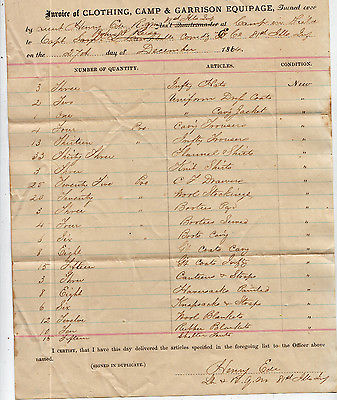 Invoice of CLOTHING, CAMP & GARRISON EQUIPAGE, Turned over
by Lieut Henry
to Capt
the 27th day of December 1864.
NUMBER OF QUANTITY. ARTICLES. CONDITION.
3 Three Infty Hats New
6 Six Uniform Coats "
1 One " Cavy Jacket "
4 Four Prs Cavy Trousers "
13 Thirteen Infty Trousers "
33 Thirty Three Flannel Shirts "
3 Three Knit Shirts "
25 Twenty Five Prs C F Drawers "
20 Twenty Wool Stockings "
3 Three Bootees "
4 Four Bootees Sewed "
6 Six Boots Cavy "
8 Eight Gt Coats Cavy "
15 Fifteen Gt Coats Infty "
3 Three Canteens & Straps "
8 Eight Haversacks Painted "
6 Six Knapsacks & Straps "
12 Twelve Wool Blankets "
10 Ten Rubber Blankets "
15 Fifteen Shelter Tents "
I CERTIFY, that I have this day delivered the articles specified in the foregoing list to the Officer above
named.
(SIGNED IN DUPLICATE.)
Henry
Lt & R.Q.M.